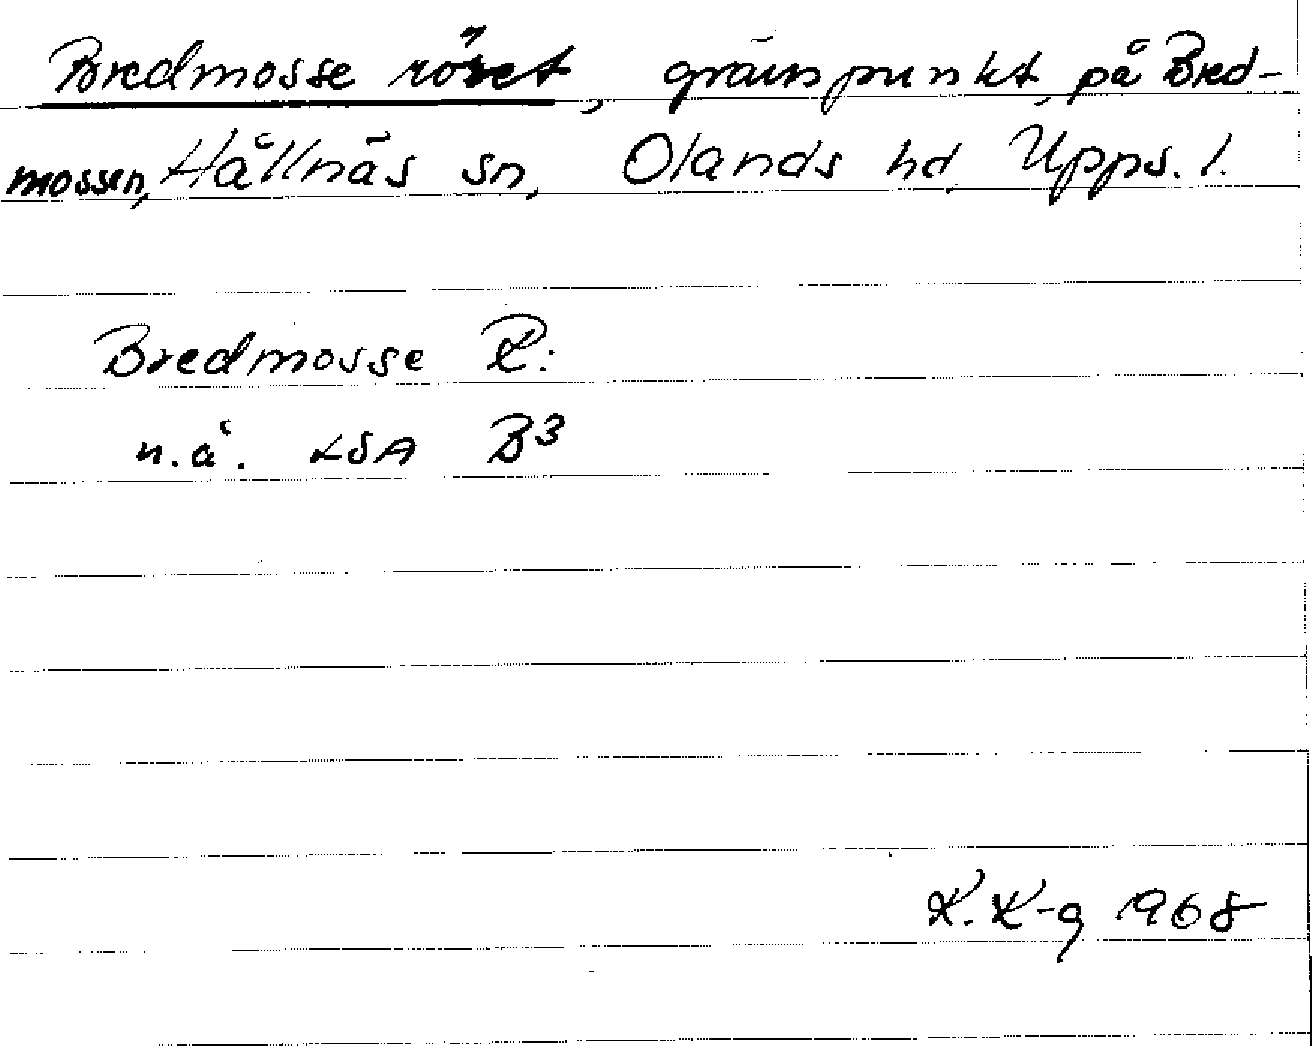 Bredmosse röset, gränspunkt, på Bred-
mossen, Hållnäs sn, Olands hd, Upps. l.
Bredmosse R:
n.å. LSA B3
K. K-g 1968